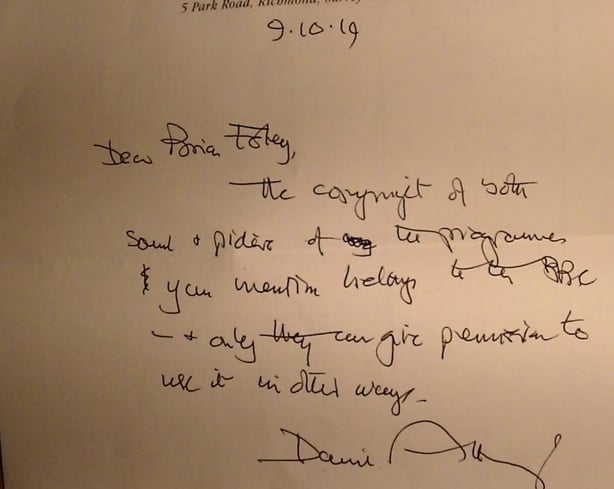 5 Park Road, Richmond, Surrey
9.10.19
Dear Brian Foley,
The copyright of both
sound & picture of the programmes
you mention belongs to the BBC
— & only they can give permission to
use it in other ways –
David